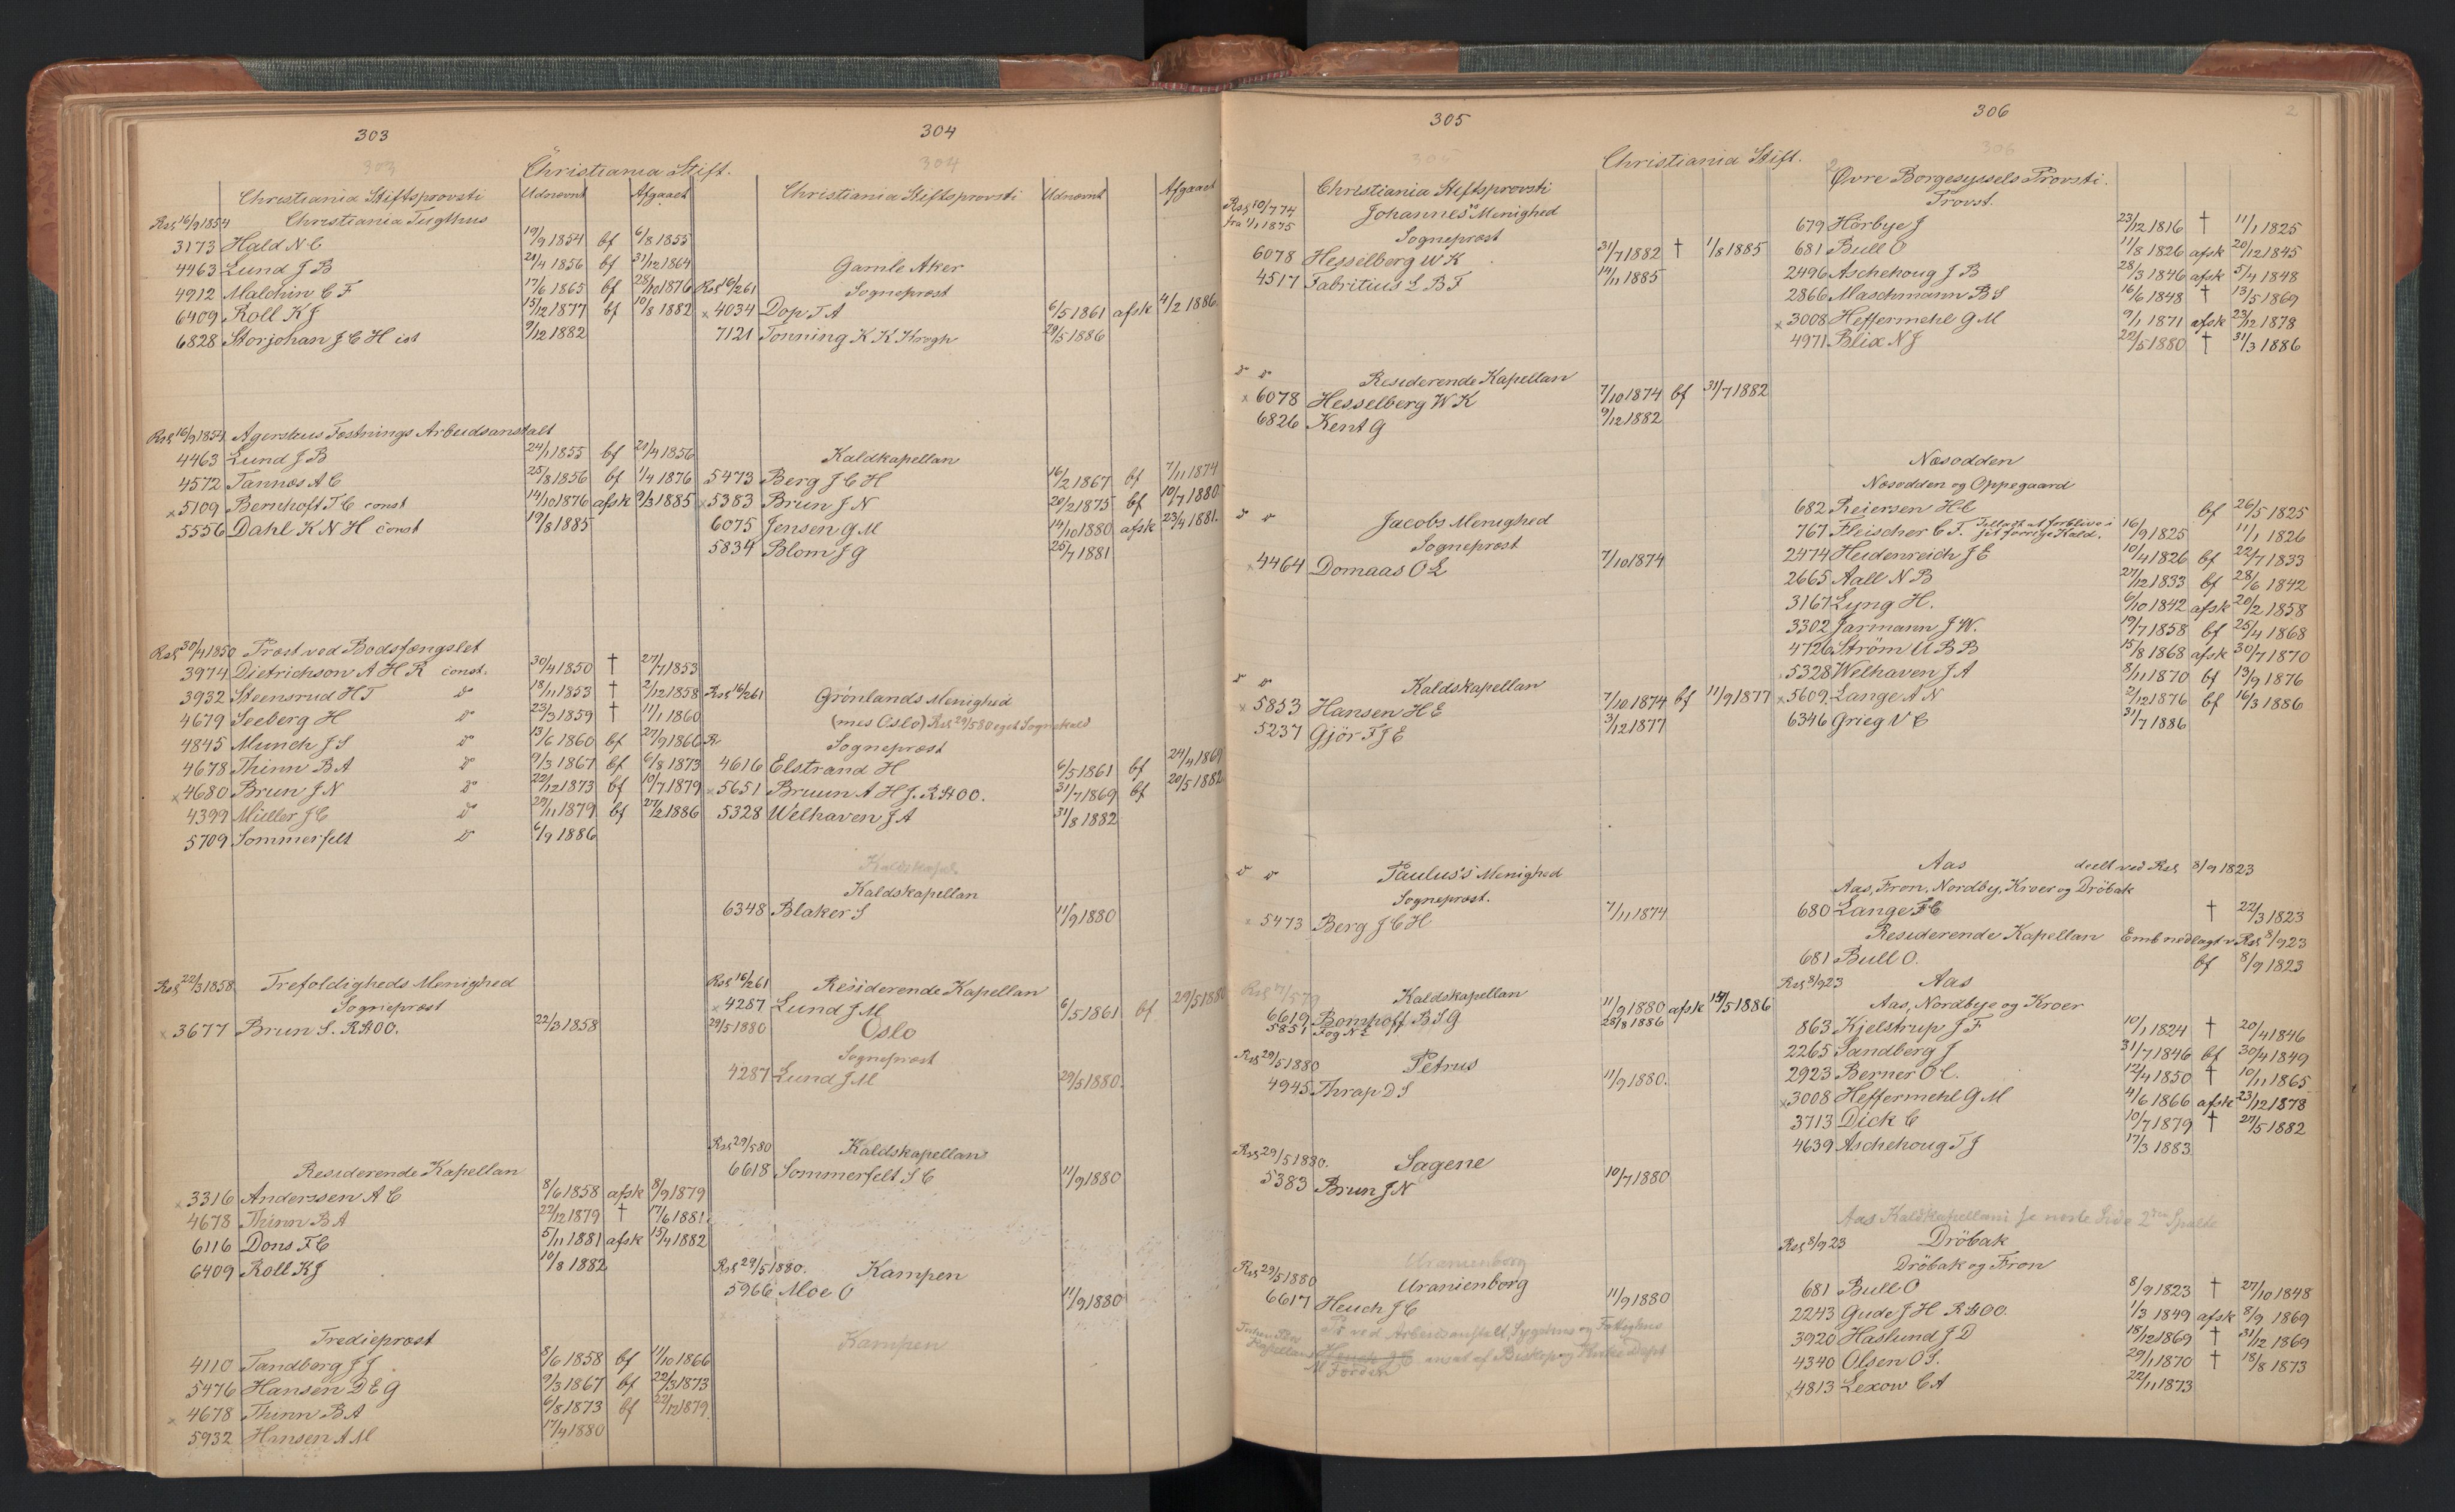 303
303
Christiania Stift.
Christiania Stiftsprovsti Udnævnt Afgaaet
Res 16/9 1854 Christiania Tugthus
3173 Hald N C 19/9 1854 bf 6/8 1855
4463 Lund J B 21/4 1856 bf 31/12 1864
4912 Malchin C F 17/6 1865 bf 28/10 1876
6409 Roll K J 15/12 1877 bf 10/8 1882
6828 Storjohan J C H ist 9/12 1882
Res 16/9 1854 Agershus Fæstnings Arbeidsanstalt
4463 Lund J B 24/1 1855 bf 21/4 1856
4572 Tannæs A C 25/8 1856 bf 1/4 1876
x 5109 Bernhoft T C const 14/10 1876 afsk 9/3 1885
5556 Dahl K N H const 19/8 1885
Res 30/4 1850 Præst ved Bodsfængslet
3974 Dietrichson A H R const. 30/4 1850 † 27/7 1853
3932 Steensrud H T do 18/11 1853 † 2/12 1858
4679 Seeberg H do 23/3 1859 † 11/1 1860
4845 Munch J S do 13/6 1860 bf 27/9 1866
4678 Thinn B A do 9/3 1867 bf 6/8 1873
x 4680 Brun J N do 22/12 1873 bf 10/7 1879
4399 Müller J C do 29/11 1879 bf 27/2 1886
5709 Sommerfelt do 6/9 1886
Res 22/3 1858 Trefoldigheds Menighed
Sognepræst
x 3677 Brun S. RStOO. 22/3 1858
Residerende Kapellan
x 3316 Anderssen A C 8/6 1858 afsk 8/9 1879
4678 Thinn B A 22/12 1879 † 17/6 1881
6116 Dons F C 5/11 1881 afsk 15/4 1882
6409 Roll K J 10/8 1882
Tredieprest
4110 Tandberg J J. 8/6 1858 bf 11/10 1866
5476 Hansen D E G 9/3 1867 bf 22/3 1873
x 4678 Thinn B A 6/8 1873 bf 22/12 1879
5932 Hansen A M 17/4 1880
304
304
Christiania Stiftsprovsti Udnævnt Afgaaet
Gamle Aker
Res 16/2 61 Sognepræst
x 4034 Dop T A 6/5 1861 afsk 4/2 1886
7121 Tonning K K Krogh 29/5 1886
Kaldkapellan
5473 Berg J C H 16/2 1867 bf 7/11 1874
x 5383 Brun J N 20/2 1875 bf 10/7 1880
6075 Jensen G M 14/10 1880 afsk 23/4 1881.
5834 Blom J G 25/7 1881
Res 16/2 61 Grønlands Menighed
(mes Oslo) Res 29/5 80 eget Sognekald
Sognepræst
4616 Elstrand H 6/5 1861 bf 24/4 1869
x 5651 Bruun A H J. RStOO. 31/7 1869 bf 20/5 1882
5328 Welhaven J A 31/8 1882
Kaldskapel
Kaldskapellan
6348 Blaker S 11/9 1880
Res 16/2 61 Residerende Kapellan
x 4287 Lund J M 6/5 1861 bf 29/5 1880
29/5 1880 Oslo
Sognepræst
4287 Lund J M 29/5 1880.
Res 29/5 80 Kaldskapellan
6618 Sommerfelt S C 11/9 1880
Res 29/5 1880. Kampen
5966 Moe O 11/9 1880
Kampen
305
305
Christiania Stift.
Christiania Stiftsprovsti
Res 10/7 74 Johannes's Menighed
fra 1/1 1875 Sognepræst
6078 Hesselberg W K 31/7 1882 † 1/8 1885
4517 Fabritius L B F 14/11 1885
do do Residerende Kapellan
x 6078 Hesselberg W K 7/10 1874 bf 31/7 1882
6826 Kent G 9/12 1882
do do Jacobs Menighed
Sognepræst
x 4464 Domaas O L 7/10 1874
do do Kaldskapellan
x 5853 Hansen H E 7/10 1874 bf 11/9 1877
5237 Gjör T J E 3/12 1877
do do Paulus's Menighed
Sognepræst.
x 5473 Berg J C H 7/11 1874
Kaldskapellan
6619 Bomhoff B S G 11/9 1880 afsk 15/5 1886
5851 Fog N L 28/8 1886
Res 29/5 1880 Petrus
4945 Thrap D S 11/9 1880.
Res 29/5 1880. Sagene
5383 Brun J N 10/7 1880
Uranienborg
Res 29/5 1880 Uranienborg
6617 Heuch J C 11/9 1880
Pr ved Arbeidsanstalt, Sygehus og Fattighus
Kapellan Heuch J C ansat af Biskop og Kirke Dept
M Forden
306
306
2
Øvre Borgesyssels Provsti.
Provst.
679 Hörbye J 23/12 1816 † 11/1 1825
681 Bull O 11/8 1826 afsk 20/12 1845
2496 Aschehoug J B 28/3 1846 afsk 5/4 1848
2866 Maschmann B S 16/6 1848 † 13/5 1869
x 3008 Heffermehl G M 9/1 1871 afsk 23/12 1878
4971 Blix N J 22/5 1880 † 31/3 1886
Næsodden
Næsodden og Oppegaard
682 Reiersen H C bf 26/5 1825
767 Fleischer C F. Tilladt at forblive i sit forrige Kald. 16/9 1825 11/1 1826
2474 Heidenreich J E 10/4 1826 bf 22/7 1833
2665 Aall N B 27/12 1833 bf 28/6 1842
3167 Lyng H. 6/10 1842 afsk 20/2 1858
3302 Jarmann J W. 19/7 1858 bf 25/4 1868
4726 Ström U B B 15/8 1868 afsk 30/7 1870
x 5328 Welhaven J A 8/11 1870 bf 13/9 1876
x 5609 Lange A N 2/12 1876 bf 16/3 1886
6346 Grieg V C 31/7 1886
Aas deelt ved Res 8/9 1823
Aas, Fron, Nordby, Kroer og Dröbak
680 Lange F C † 22/3 1823
Residerende Kapellan Emb nedlagt v Res 8/9 23
681 Bull O. bf 8/9 1823
Res 8/9 23 Aas
Aas, Nordbye og Kroer
863 Kjelstrup J F 10/1 1824 † 20/4 1846
2265 Sandberg J 31/7 1846 bf 30/4 1849
2923 Berner O C. 12/4 1850 † 10/11 1865
x 3008 Heffermehl G M 4/6 1866 afsk 23/12 1878
3713 Dick C 10/7 1879 † 27/5 1882
4639 Aschehoug T J 17/3 1883
Aas Kaldskapellani se næste Side 2den Spalte
Res 8/9 23 Dröbak
Dröbak og Fron
681 Bull O 8/9 1823 † 27/10 1848
2243 Gude J H RStOO. 1/3 1849 afsk 8/9 1869
3920 Haslund J D 18/12 1869 † 31/12 1869
4340 Olsen O S. 29/1 1870 † 18/8 1873
x 4813 Lexow C A 22/11 1873